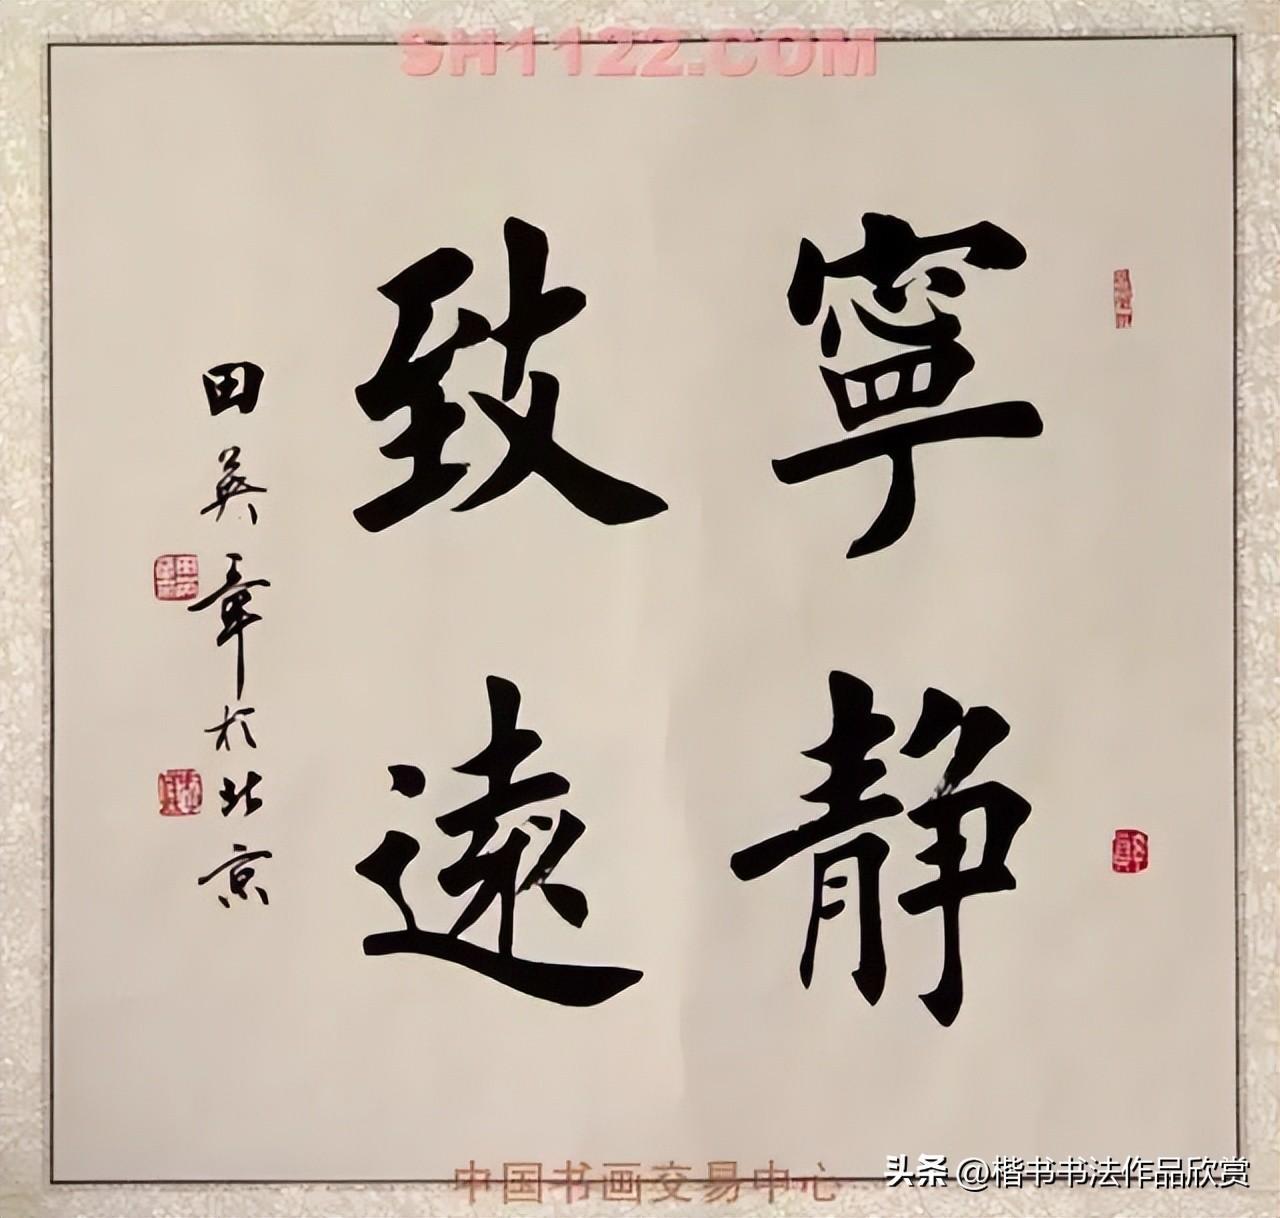 SH1122.COM
寧靜
致遠
田英章於北京
中国书画交易中心
头条 @楷书书法作品欣赏